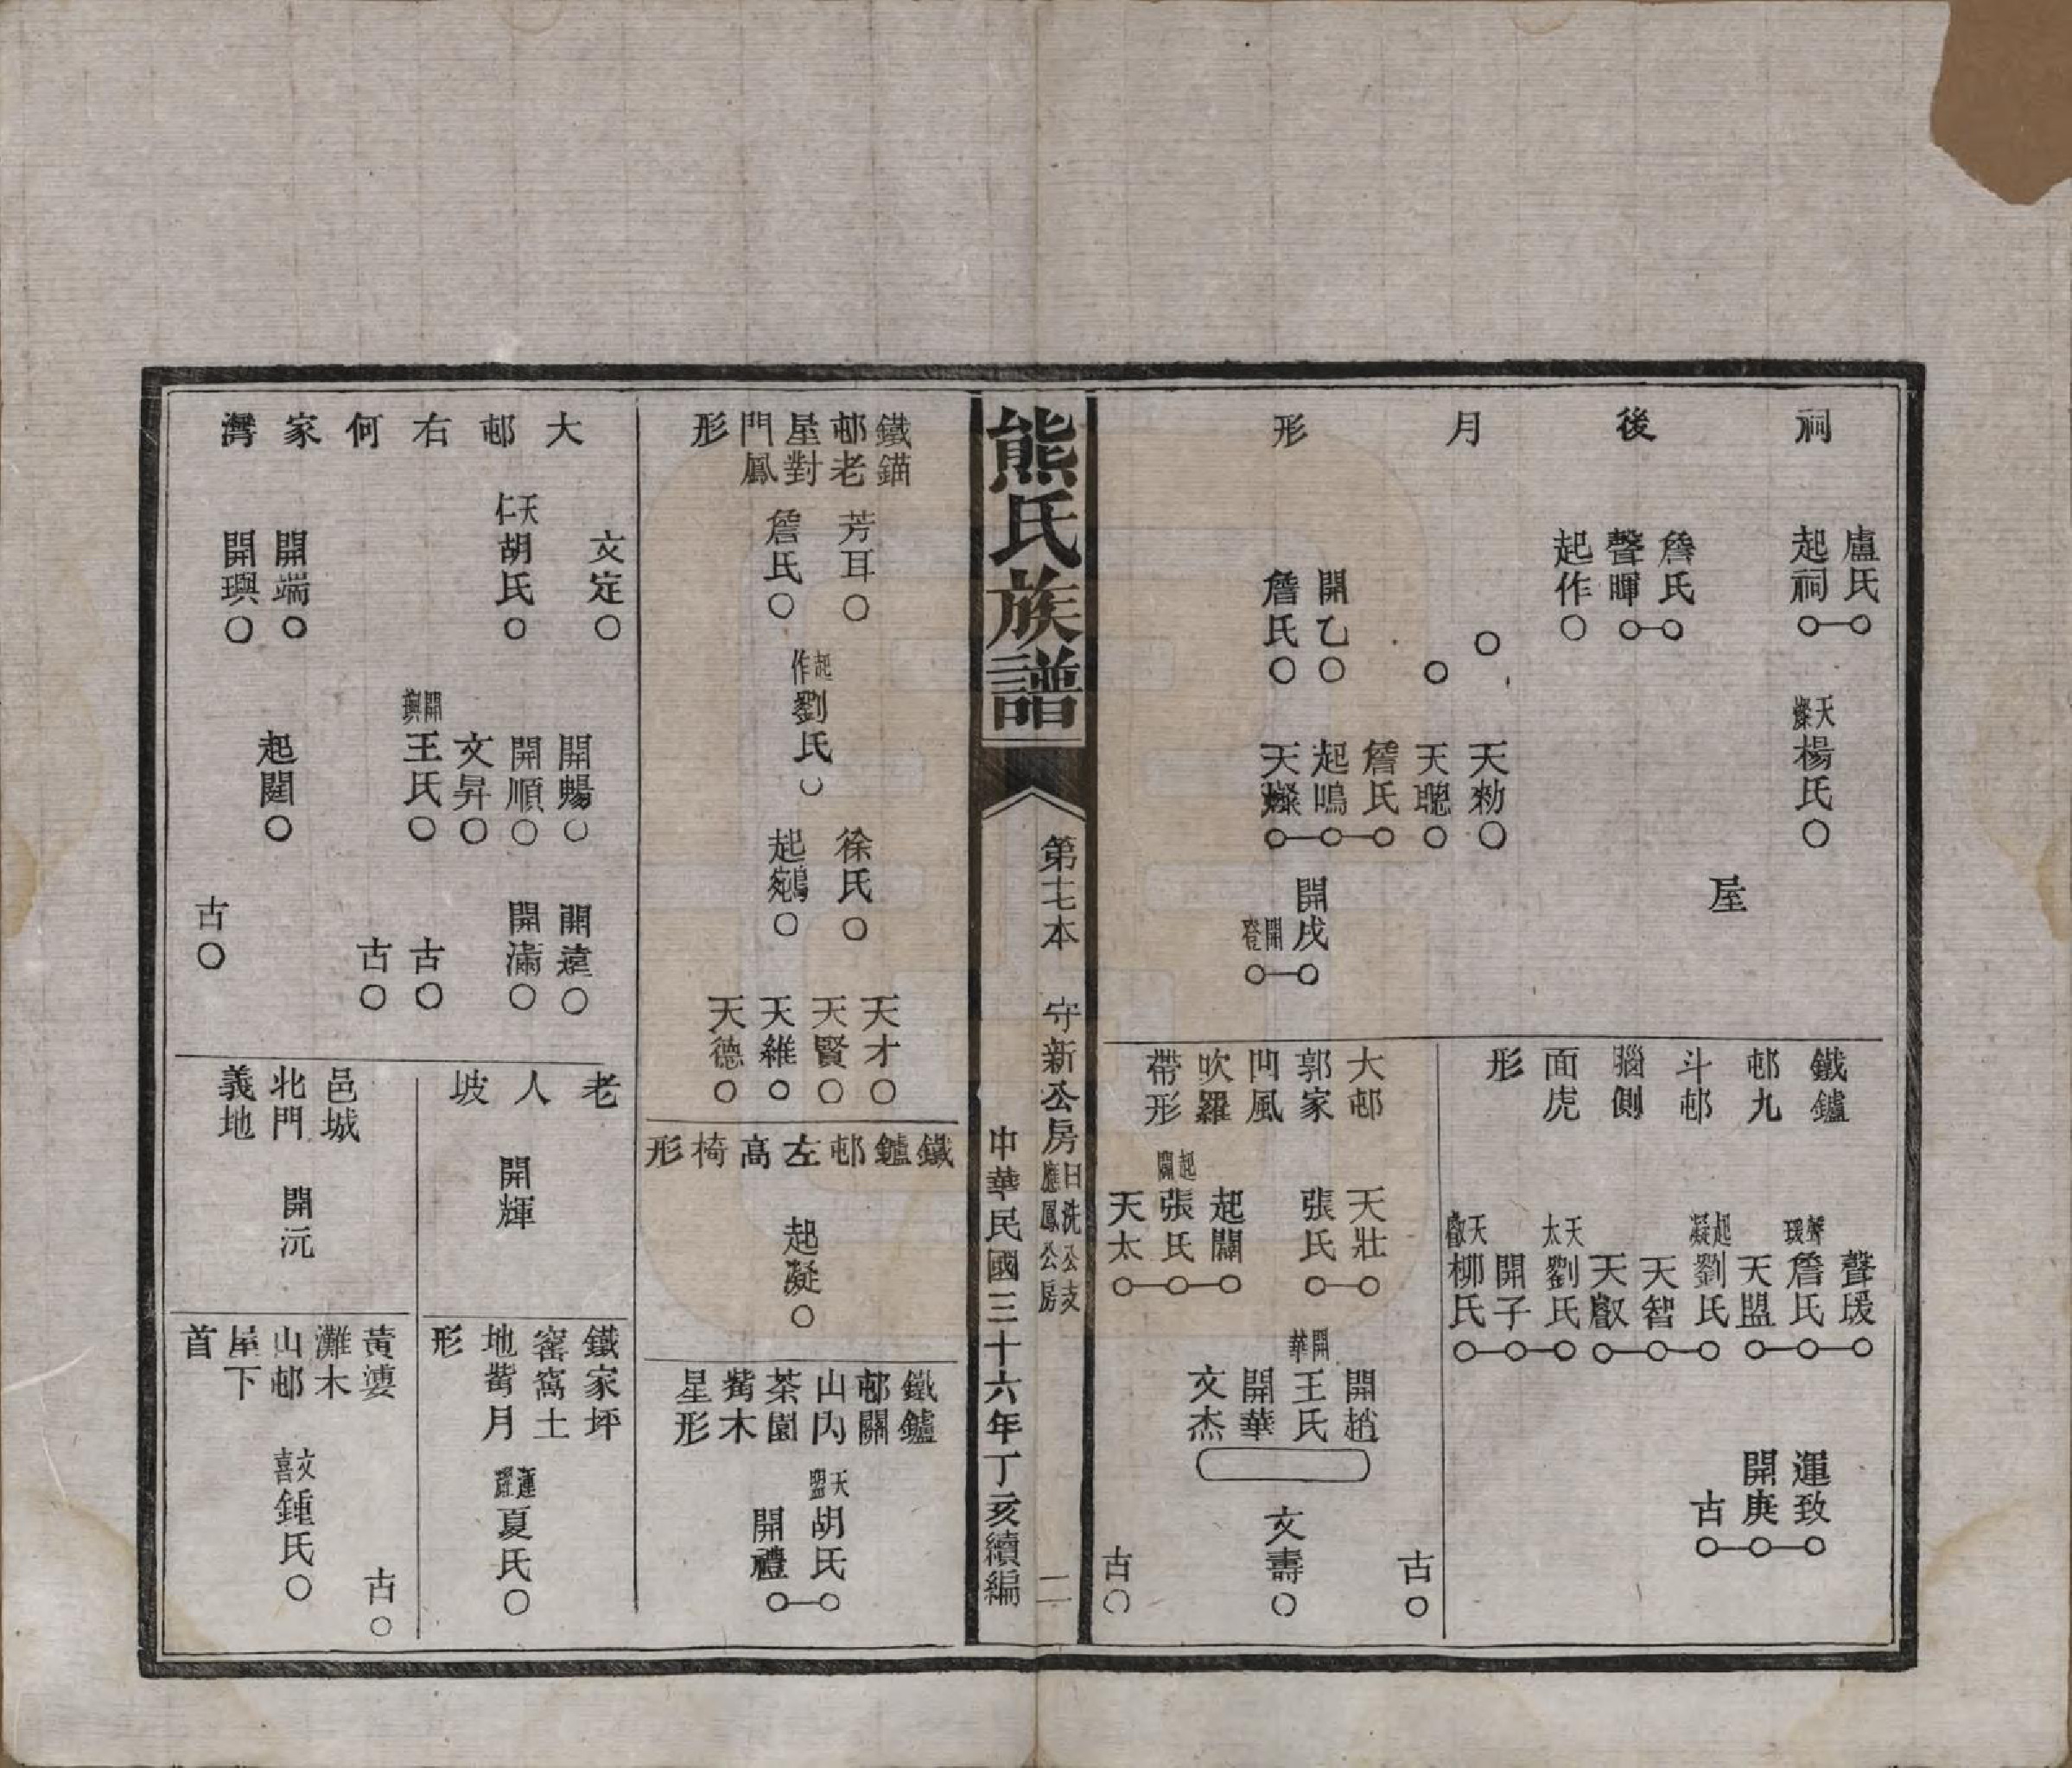 祠後月形
盧氏○
起祠○
天燦楊氏○
詹氏○
聲暉○
起作○
屋
○
○
天勑○
天聰○
開乙○
詹氏○
詹氏○
起鳴○
天燦○
開戌○
開登○
鐵鑪邨九斗邨腦側面虎形
聲瑗○
聲瑗詹氏○
天盟○
起凝劉氏○
天智○
天叡○
天太劉氏○
開子○
天叡柳氏○
運致○
開庚○
古○
大邨郭家凹風吹羅帶形
天壯○
張氏○
起關○
起關張氏○
天太○
開趙
開華王氏
開華
文杰
文壽○
古○
古○
熊氏族譜
第七本 守新公房日洗公支應鳳公房 二
中華民國三十六年丁亥續編
鐵錨邨老屋對門鳳形
芳耳○
詹氏○
起作劉氏○
徐氏○
起鵷○
天才○
天賢○
天維○
天德○
鐵鑪邨左高椅形
起凝○
鐵鑪邨關山內茶園觜木星形
天盟胡氏○
開禮○
大邨右何家灣
文定○
天仁胡氏○
開端○
開璵○
開暢○
開順○
文昇○
開璵王氏○
起閮○
開遠○
開滿○
古○
古○
古○
老人坡
開輝
邑城北門義地
開沅
鐵家坪窰窩土地觜月形
運躍夏氏○
黃婆灘木山邨屋下首
文喜鍾氏○
古○